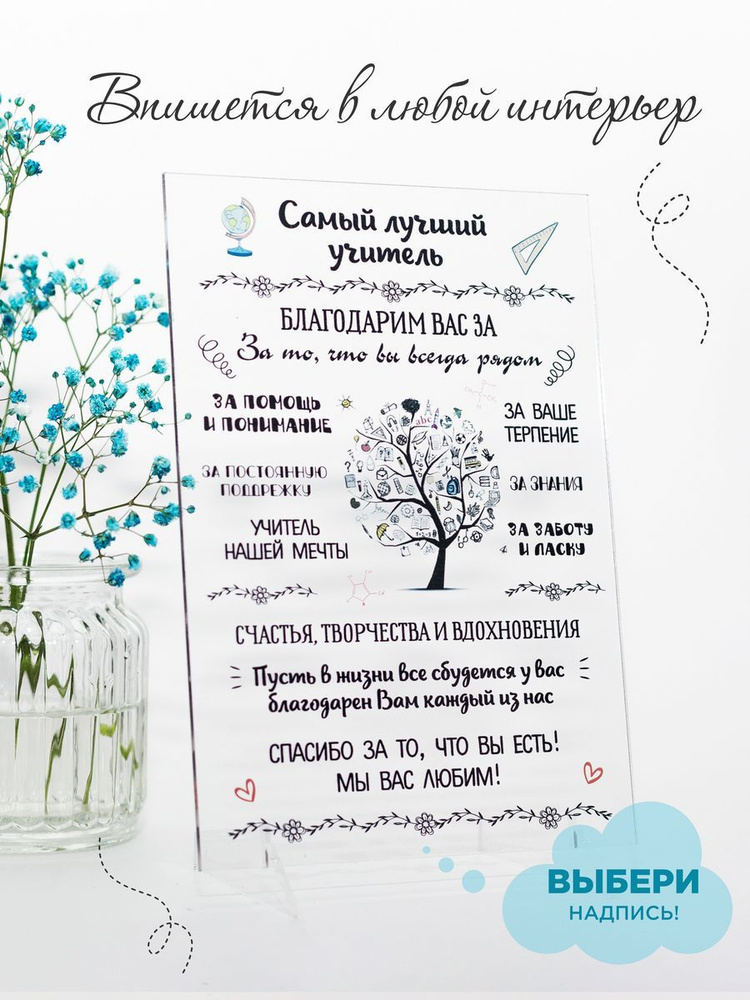 Впишется в любой интерьер
Самый лучший
учитель
БЛАГОДАРИМ ВАС ЗА
За то, что вы всегда рядом
ЗА ПОМОЩЬ
И ПОНИМАНИЕ
ЗА ВАШЕ
ТЕРПЕНИЕ
abc
ЗА ПОСТОЯННУЮ
ПОДДРЕЖКУ
ЗА ЗНАНИЯ
УЧИТЕЛЬ
НАШЕЙ МЕЧТЫ
ЗА ЗАБОТУ
И ЛАСКУ
СЧАСТЬЯ, ТВОРЧЕСТВА И ВДОХНОВЕНИЯ
Пусть в жизни все сбудется у вас
благодарен Вам каждый из нас
СПАСИБО ЗА ТО, ЧТО ВЫ ЕСТЬ!
МЫ ВАС ЛЮБИМ!
ВЫБЕРИ
НАДПИСЬ!